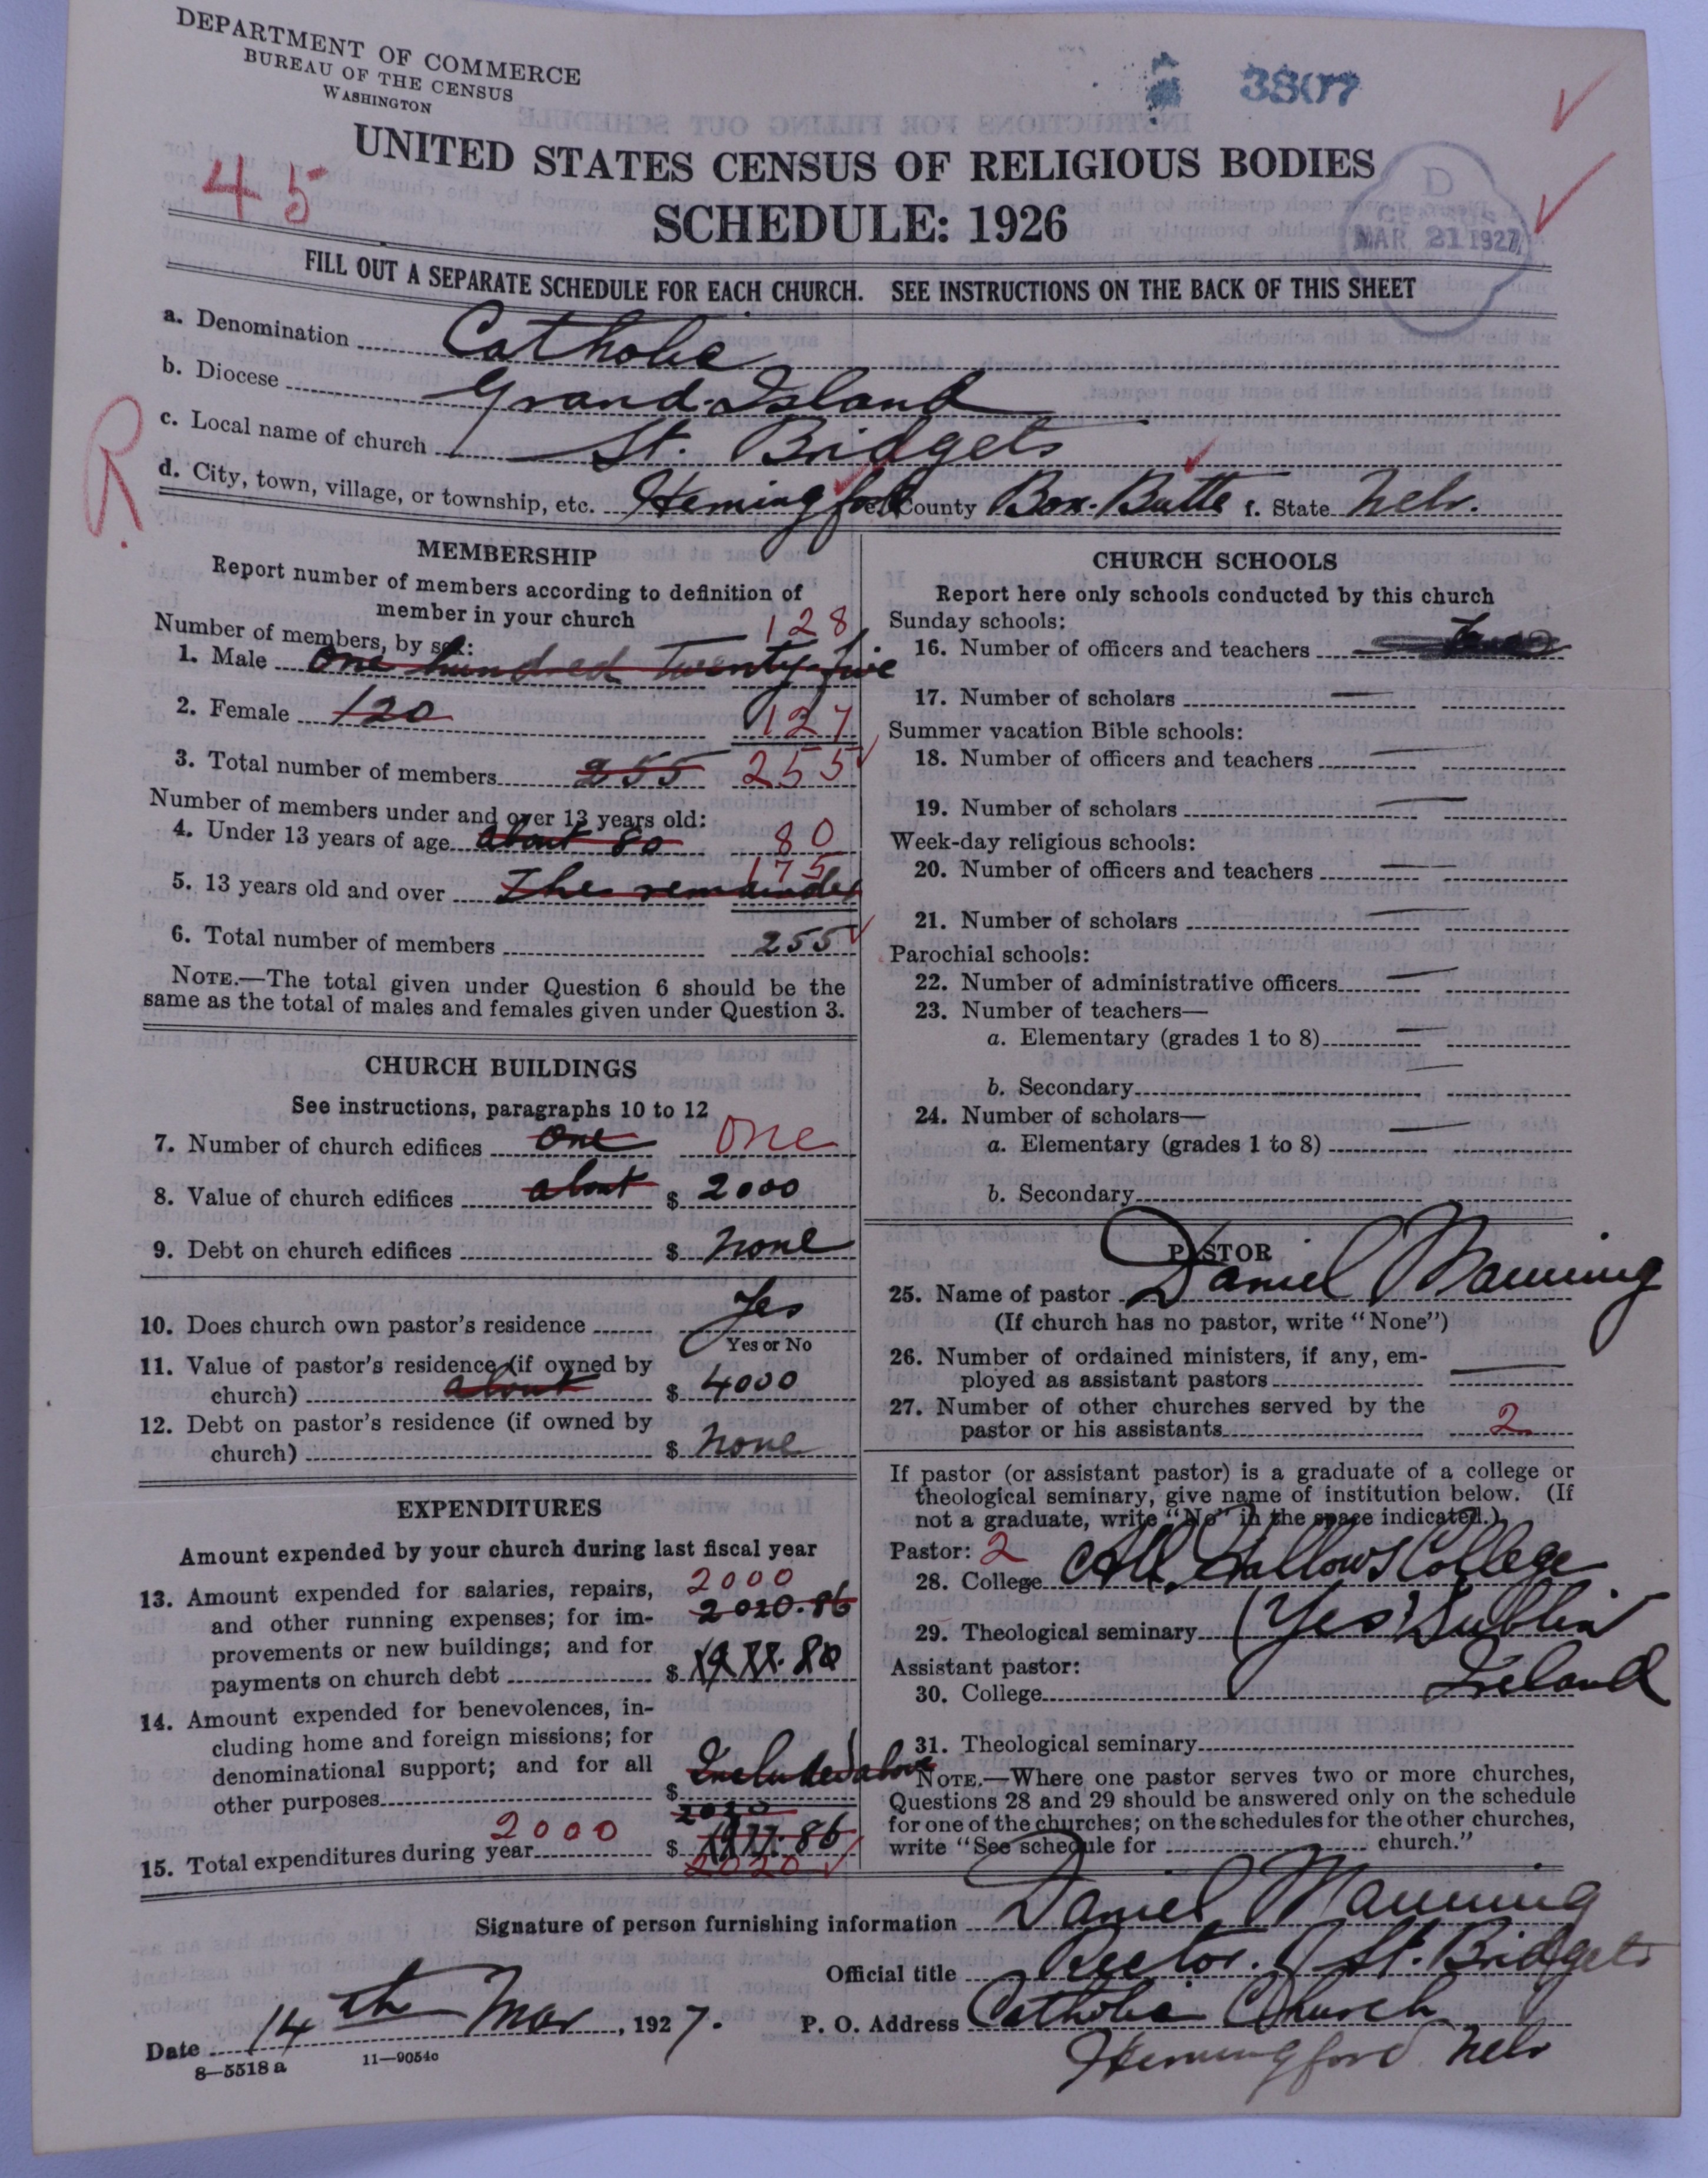 DEPARTMENT OF COMMERCE
BUREAU OF THE CENSUS
WASHINGTON
3807
UNITED STATES CENSUS OF RELIGIOUS BODIES
45
SCHEDULE: 1926
D
CENSUS
MAR 21 1927
FILL OUT A SEPARATE SCHEDULE FOR EACH CHURCH. SEE INSTRUCTIONS ON THE BACK OF THIS SHEET
a. Denomination Catholic
b. Diocese Grand Island
c. Local name of church St. Bridgets
R.
d. City, town, village, or township, etc. Hemingford e. County Box-Butte f. State Nebr.
MEMBERSHIP
Report number of members according to definition of
member in your church
Number of members, by sex: 128
1. Male One hundred Twenty-five
2. Female 120 127
3. Total number of members 255 255
Number of members under and over 13 years old:
4. Under 13 years of age about 80 80
175
5. 13 years old and over The remainder
6. Total number of members 255
NOTE.—The total given under Question 6 should be the
same as the total of males and females given under Question 3.
CHURCH BUILDINGS
See instructions, paragraphs 10 to 12
7. Number of church edifices One One
8. Value of church edifices about $ 2000
9. Debt on church edifices $ None
10. Does church own pastor's residence Yes
Yes or No
11. Value of pastor's residence (if owned by
church) about $ 4000
12. Debt on pastor's residence (if owned by
church) $ None
EXPENDITURES
Amount expended by your church during last fiscal year
13. Amount expended for salaries, repairs, 2000
and other running expenses; for im- 2020.86
provements or new buildings; and for
payments on church debt $
14. Amount expended for benevolences, in-
cluding home and foreign missions; for
denominational support; and for all Included above
other purposes $
2020
15. Total expenditures during year 2000 $ 1977.86
2020
CHURCH SCHOOLS
Report here only schools conducted by this church
Sunday schools:
16. Number of officers and teachers
17. Number of scholars —
Summer vacation Bible schools:
18. Number of officers and teachers —
19. Number of scholars —
Week-day religious schools:
20. Number of officers and teachers —
21. Number of scholars —
Parochial schools:
22. Number of administrative officers —
23. Number of teachers—
a. Elementary (grades 1 to 8) —
b. Secondary —
24. Number of scholars—
a. Elementary (grades 1 to 8) —
b. Secondary
PASTOR
25. Name of pastor Daniel Manning
(If church has no pastor, write "None")
26. Number of ordained ministers, if any, em-
ployed as assistant pastors —
27. Number of other churches served by the
pastor or his assistants 2
If pastor (or assistant pastor) is a graduate of a college or
theological seminary, give name of institution below. (If
not a graduate, write "No" in the space indicated.)
Pastor: 2
28. College All Hallows College
29. Theological seminary (Yes) Dublin
Assistant pastor:
30. College Ireland
31. Theological seminary
NOTE.—Where one pastor serves two or more churches,
Questions 28 and 29 should be answered only on the schedule
for one of the churches; on the schedules for the other churches,
write "See schedule for church."
Signature of person furnishing information Daniel Manning
Official title Rector. St. Bridgets
Date 14th Mar, 1927. P. O. Address Catholic Church
Hemingford Nebr
8—5518 a 11—9054c